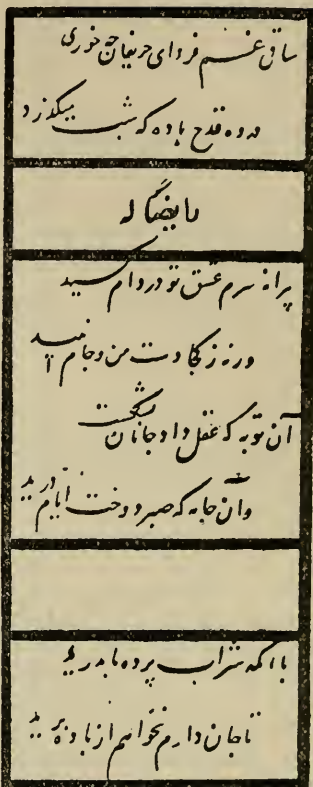 ساقی غم فردای حریفان چه خوری
در ده قدح باده که شب میگذرد
ایضاً له
پیرانه سرم عشق تو در دام کشید
ورنه ز کجا دست من و جام نبید
آن توبه که عقل داد جانان بشکست
وان جامه که صبر دوخت ایام درید
با آنکه شراب پرده ما بدرید
تا جان دارم نخواهم از باده برید